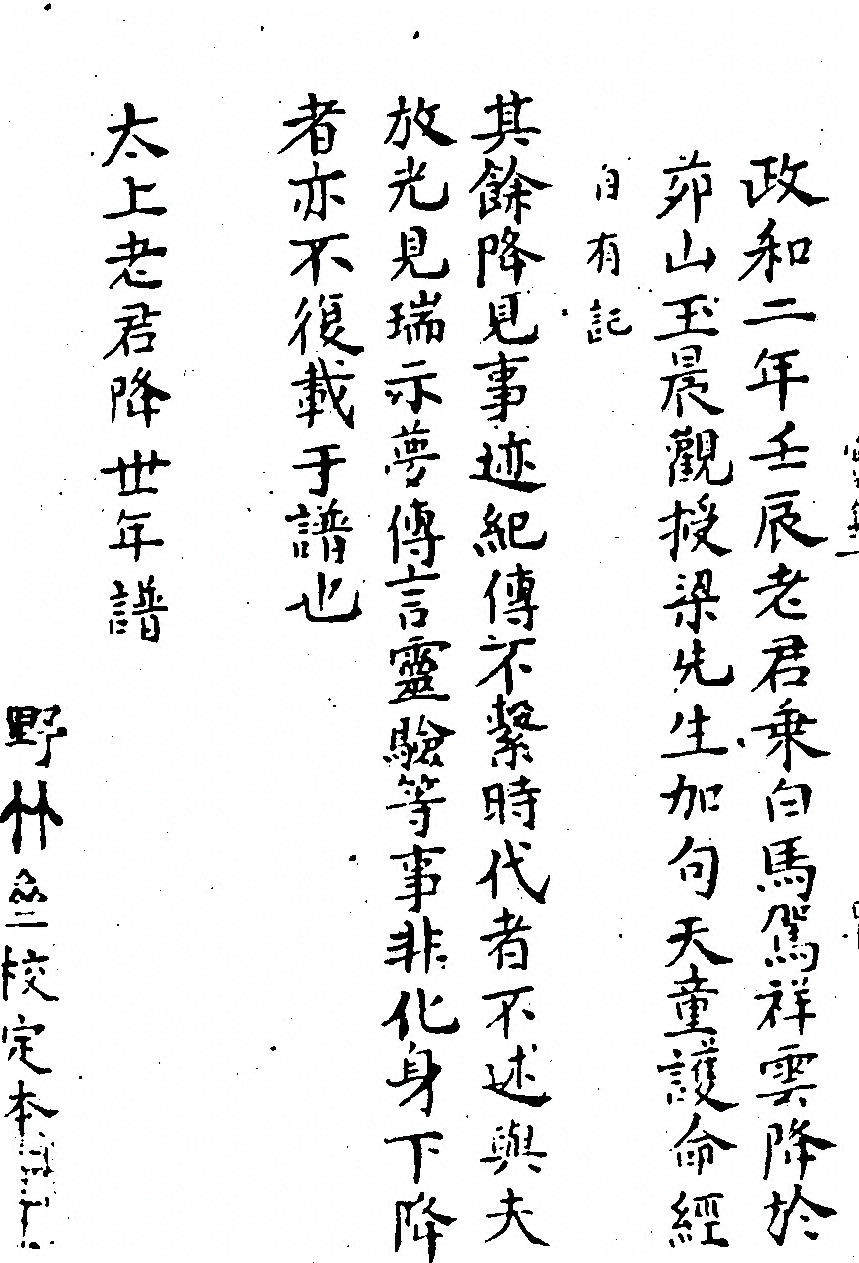 政和二年壬辰老君乘白馬駕祥雲降於
茆山玉晨觀授梁先生加句天童護命經
自有記
其餘降見事迹紀傳不繫時代者不述與夫
放光見瑞示夢傳言靈驗等事非化身下降
者亦不復載于譜也
太上老君降世年譜
野竹亝校定本